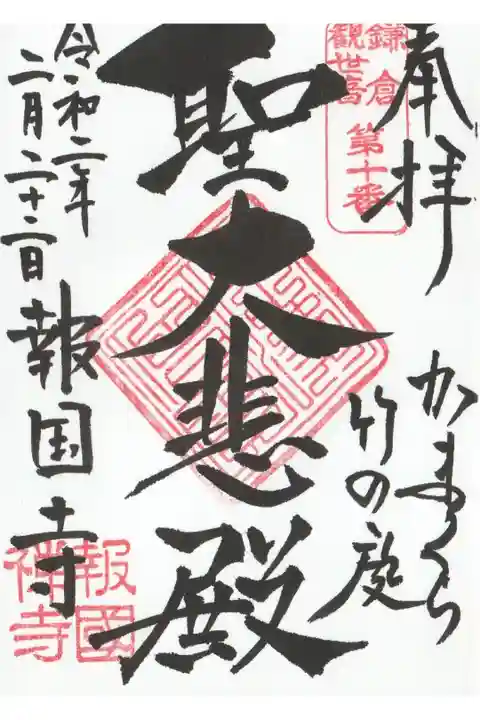 奉拝
鎌倉
観世音
第十番
かまくら
竹の庭
聖大悲殿
令和二年
二月二十二日
報国寺
報國
禅寺